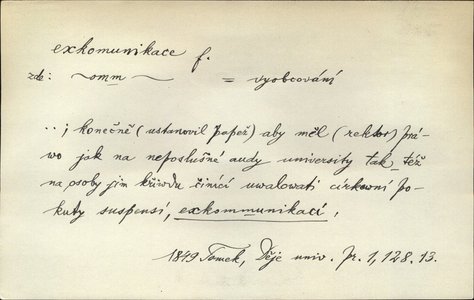 exkomunikace f.
zde: ~omm~ = vyobcování
..; konečně (ustanovil papež) aby měl (rektor) prá-
wo jak na neposlušné audy university tak též
na osoby jim křivdu činící uwalowati církewní po-
kuty suspensí, exkommunikací,
1849 Tomek, Děje univ. Pr. 1, 128. 13.